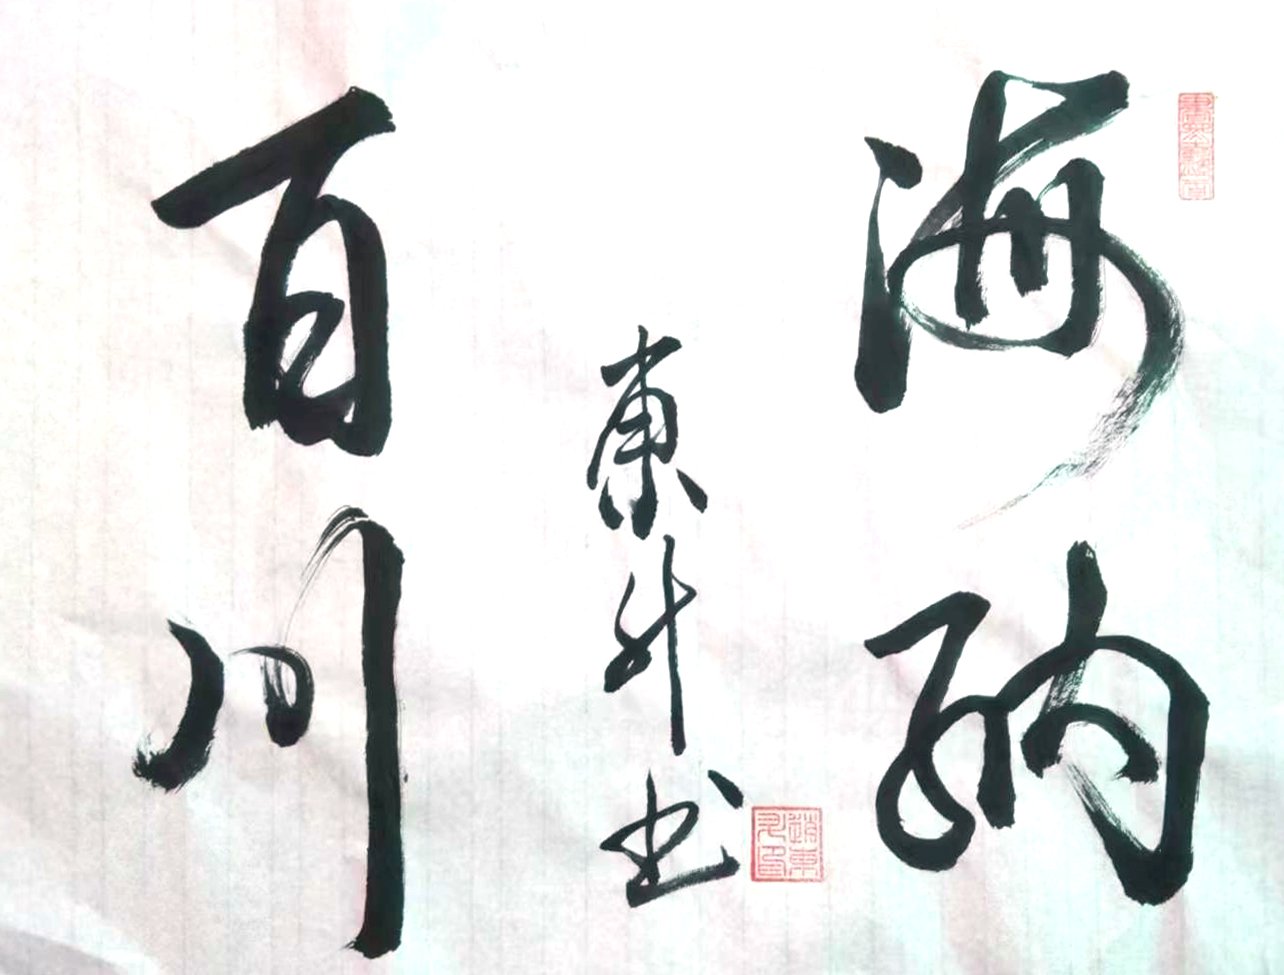 海纳
百川
东升书